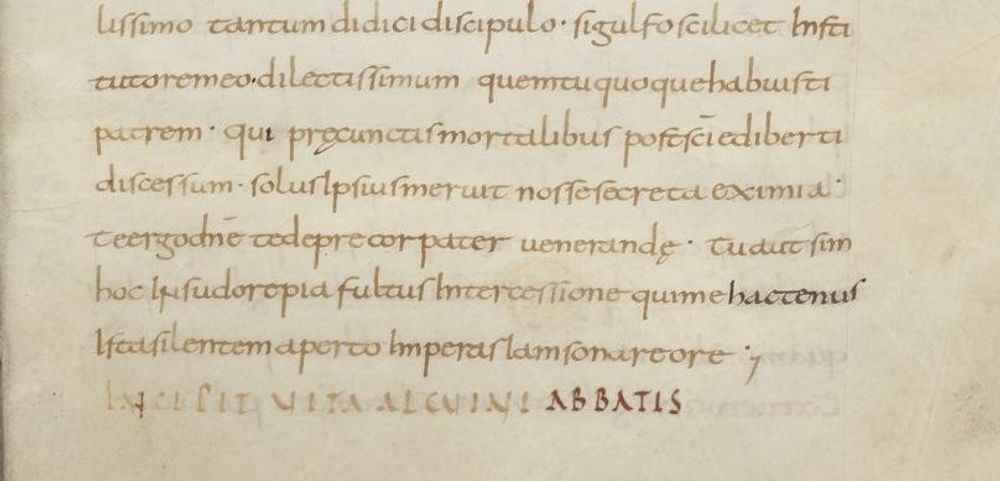 lissimo tantum didici discipulo · sigulfo scilicet Insti
tutore meo · dilectissimum quem tu quoque habuisti
patrem · qui pręcunctis mortalibus post sc̄i ediberti
discessum · solus Ipsius meruit nosse secreta eximia :
te ergo dn̄e te deprecor pater venerandę · tu aut sim
hoc In sudore pia fultus Intercessione qui me hactenus
Ista silentem aperto Imperas Iam sonare ore ·,
INCIPIT VITA ALCUINI ABBATIS